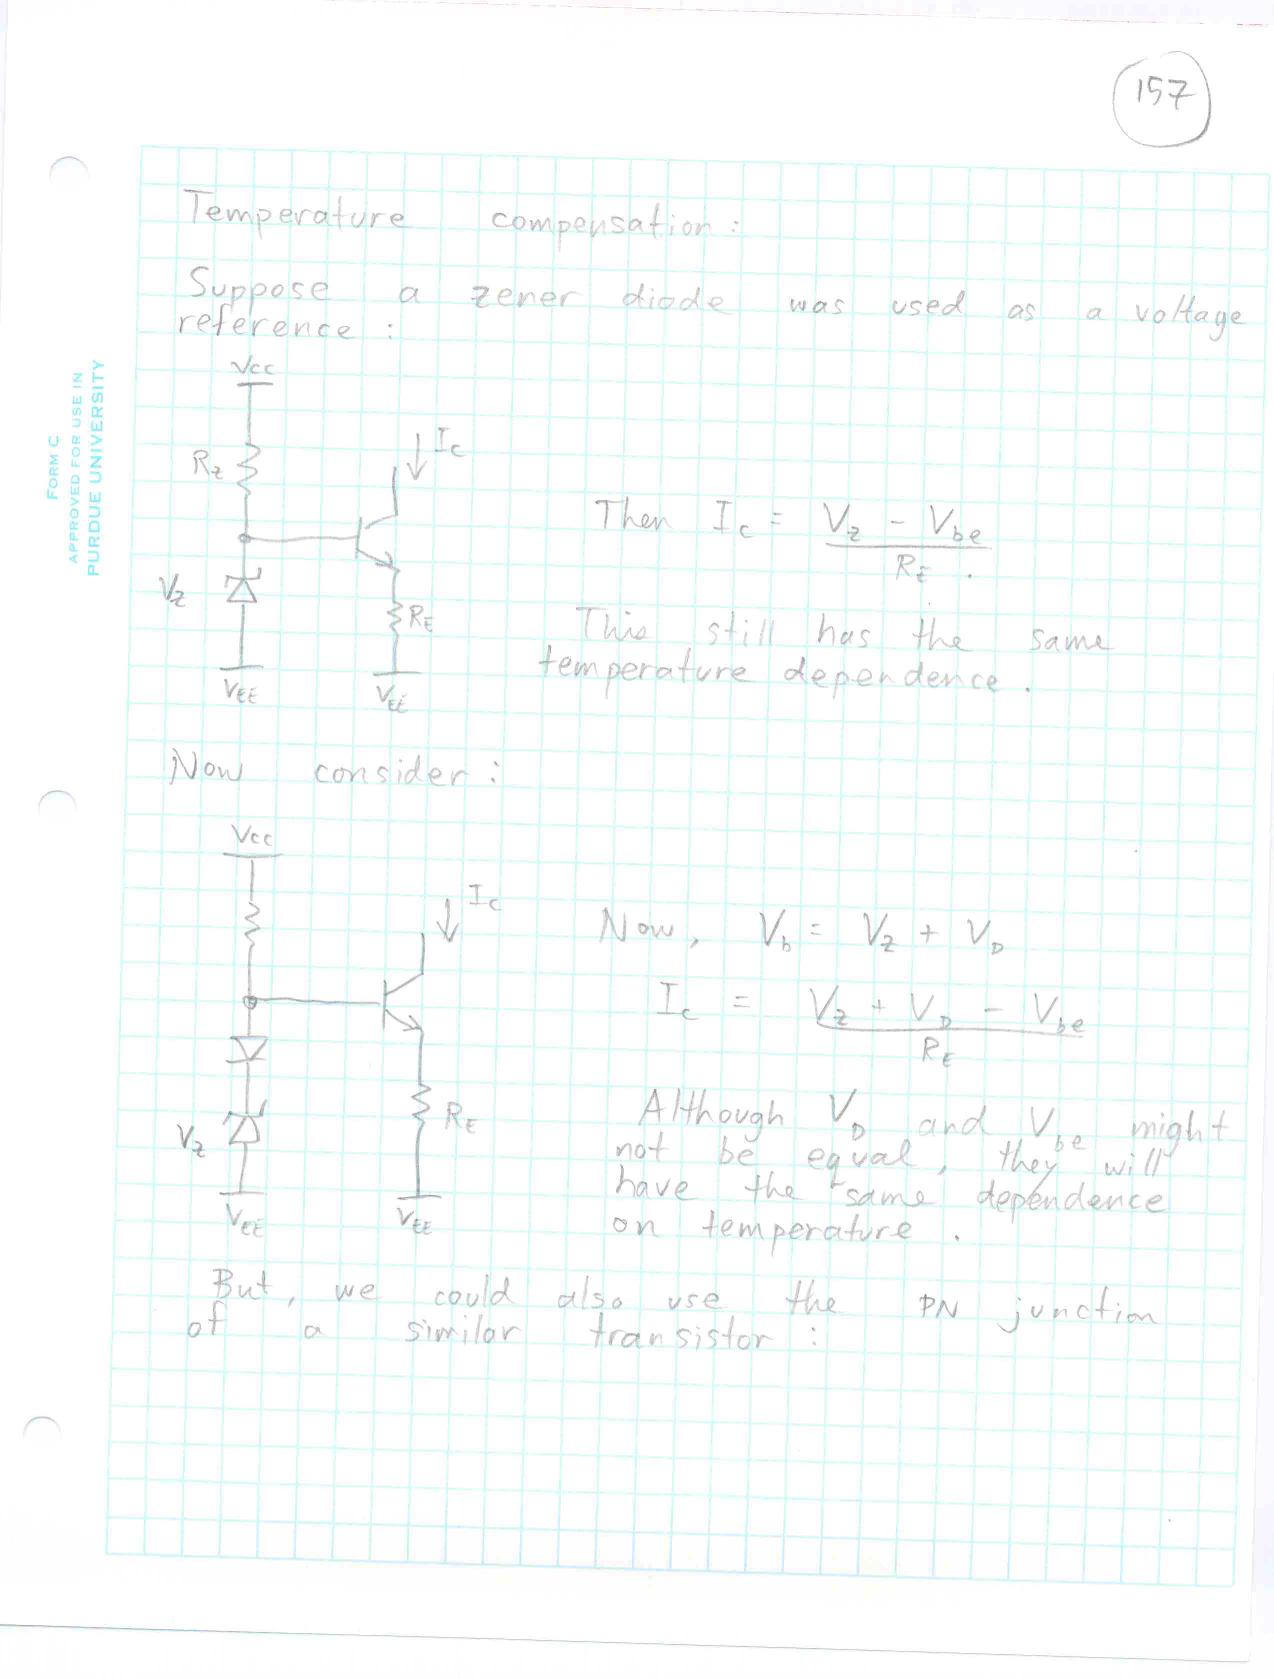 157
FORM C
APPROVED FOR USE IN
PURDUE UNIVERSITY
Temperature compensation:
Suppose a zener diode was used as a voltage
reference:
Vcc
Ic
Rz
Then Ic = Vz - Vbe
RE.
Vz
RE
This still has the same
temperature dependence.
VEE
VEE
Now consider:
Vcc
Ic
Now, Vb = Vz + VD
Ic = Vz + VD - Vbe
RE
Vz
RE
Although VD and Vbe might
not be equal, they will
have the same dependence
on temperature.
VEE
VEE
But, we could also use the PN junction
of a similar transistor: